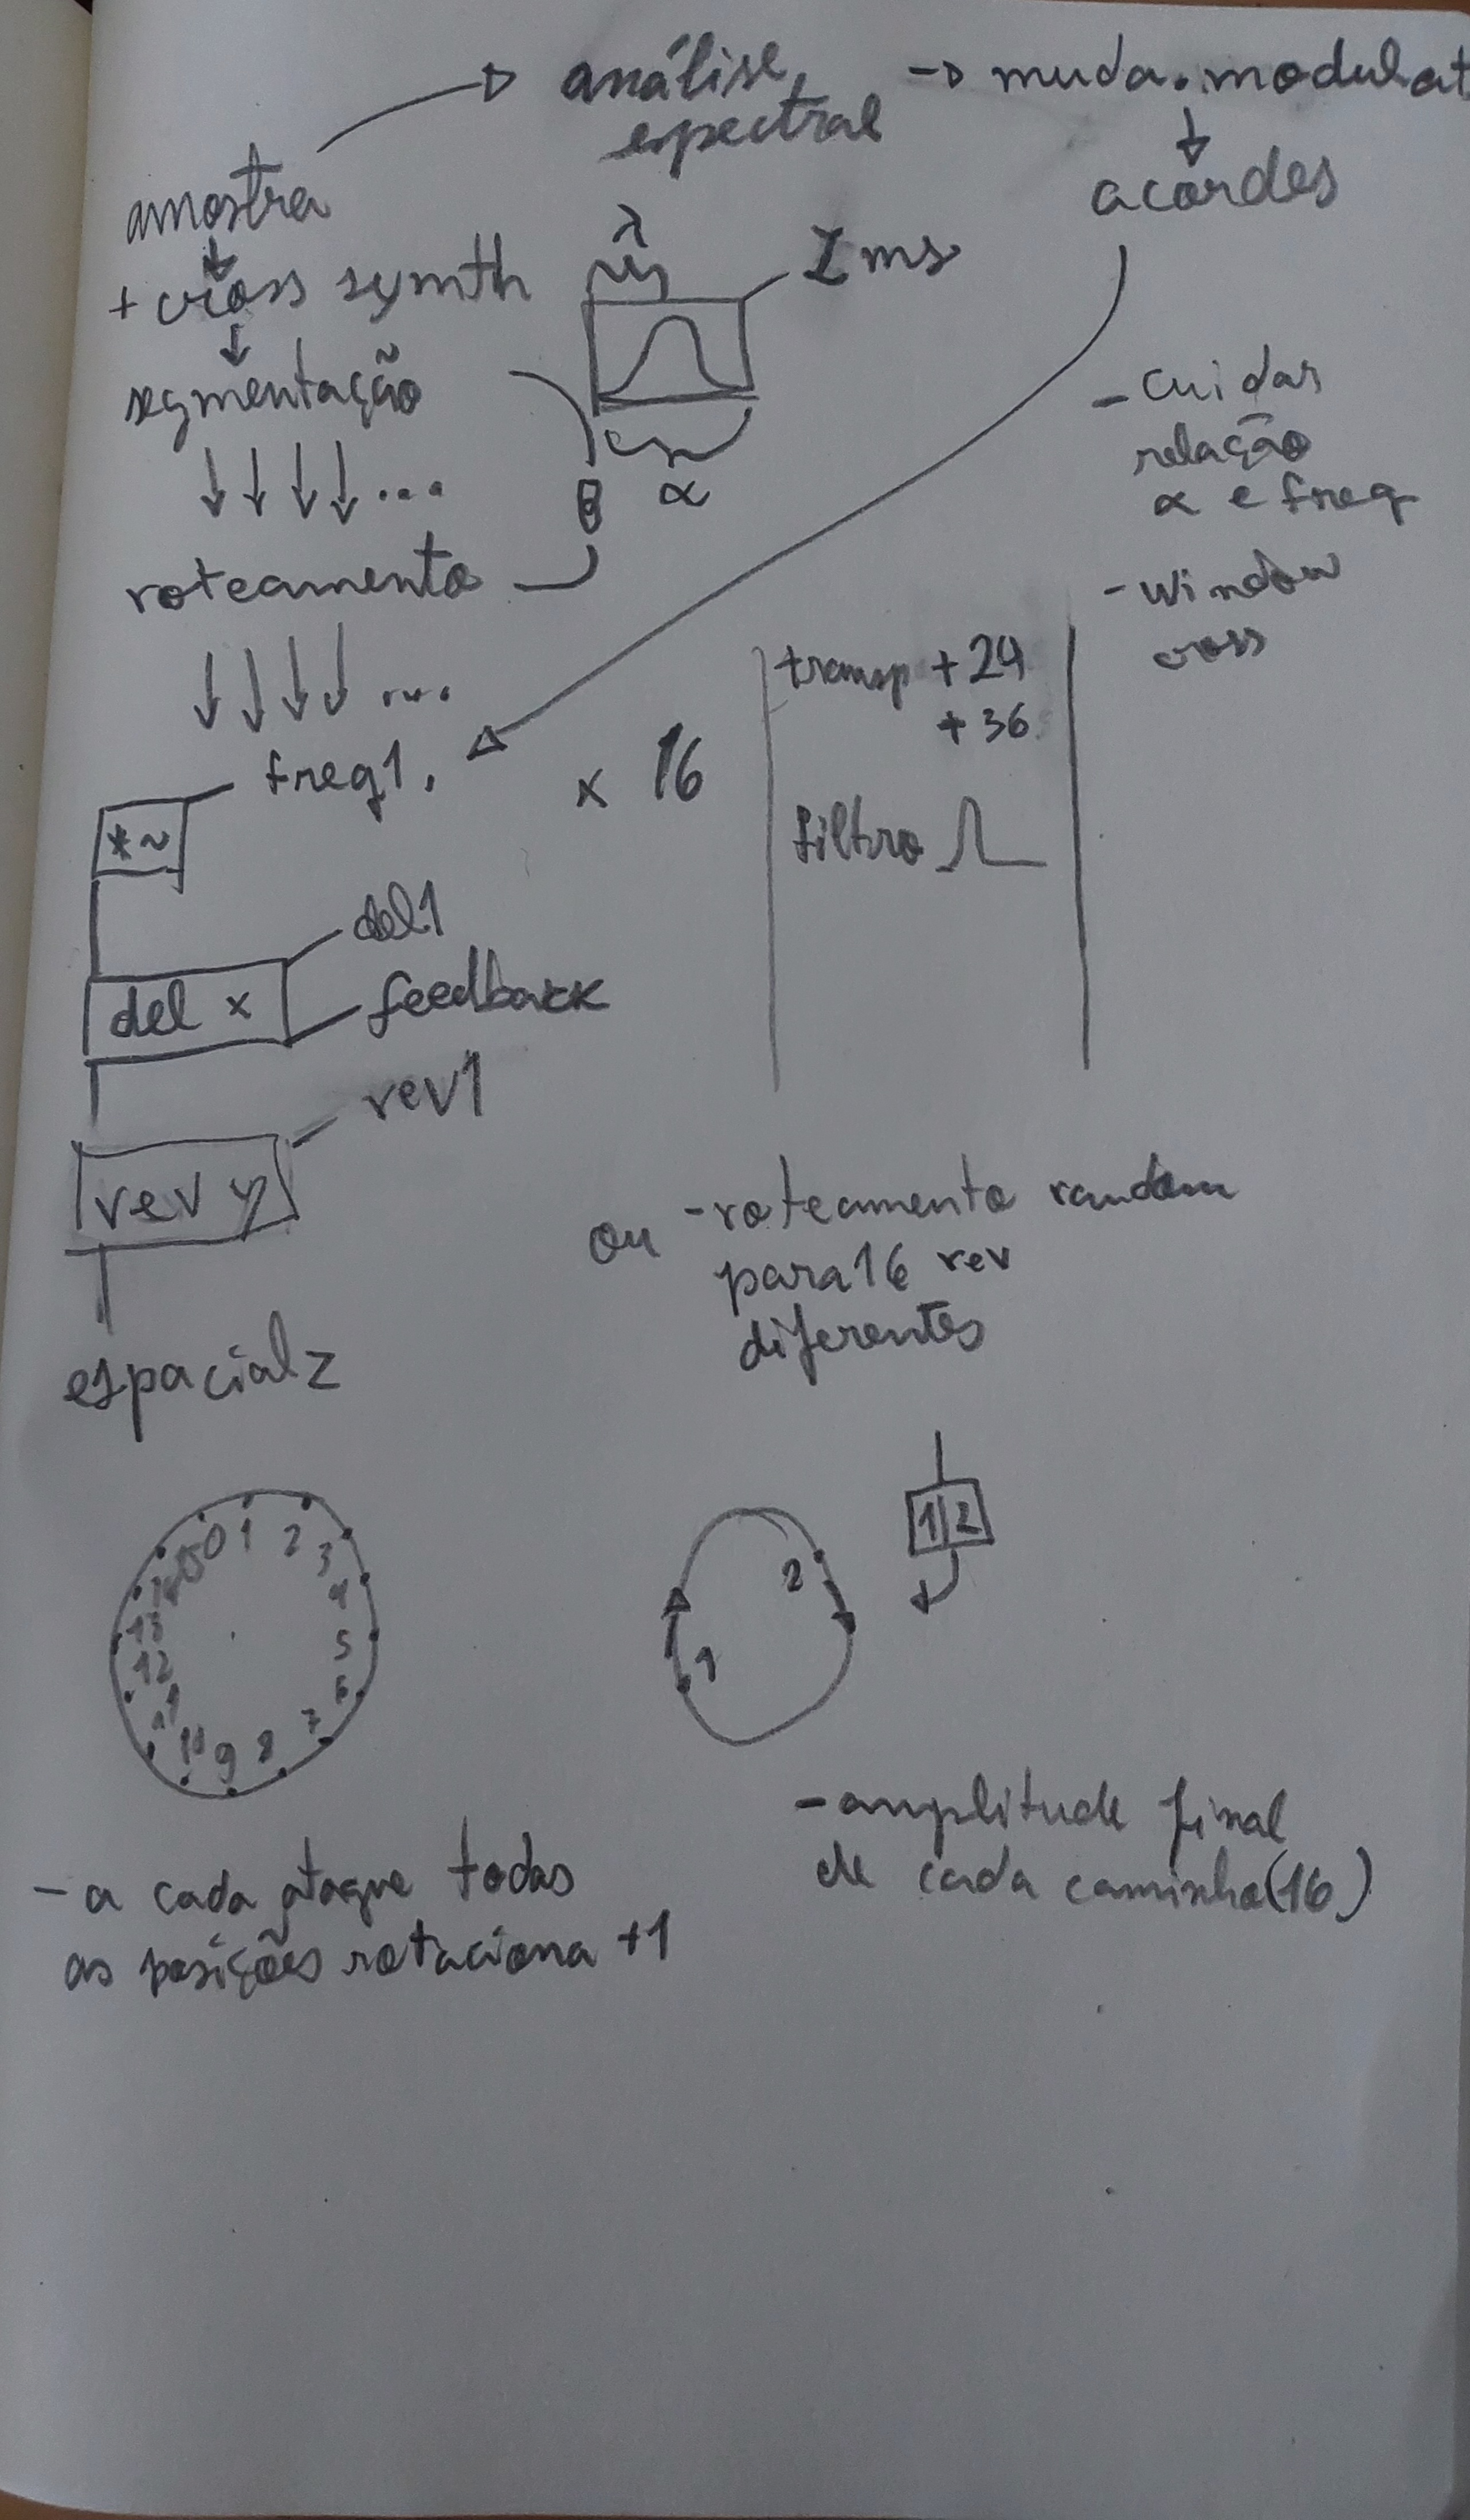 análise
espectral
→ muda. modulat
acordes
amostra
+ cross synth
segmentação
...
roteamento
...
λ
ms
α
- cuidar
relação
α e freq
- window
cross
freq1.
x 16
transp +24
+36
filtro
*~
del1
del x
feedback
rev1
rev y
espacial z
ou - roteamento random
para 16 rev
diferentes
0 1 2 3 4 5 6 7 8 9 10 11 12 13 14 15
1 2
1|2
- a cada ataque todas
as posições rotaciona +1
- amplitude final
de cada caminho (16)